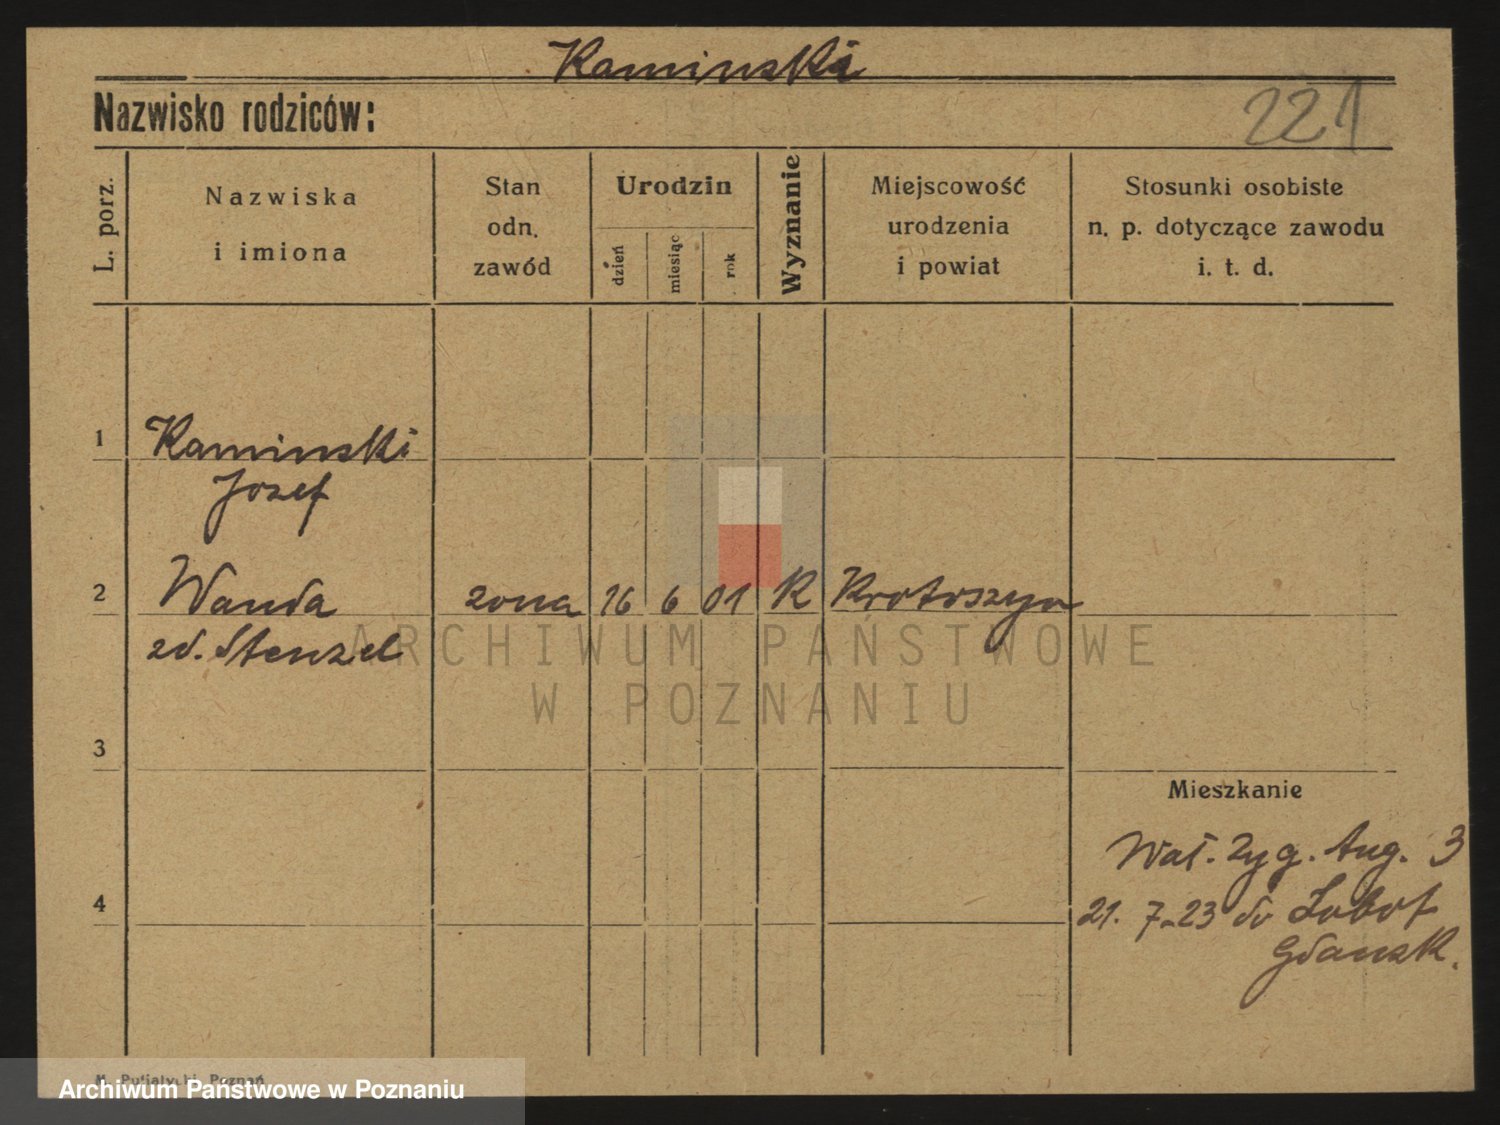 Kaminski
Nazwisko rodziców:
221
L. porz.
Nazwiska
i imiona
Stan
odn.
zawód
Urodzin
dzień
miesiąc
rok
Wyznanie
Miejscowość
urodzenia
i powiat
Stosunki osobiste
n. p. dotyczące zawodu
i. t. d.
1
Kaminski
Jozef
2
Wanda
zona
16
6
01
K
Krotoszyn
zd. Stenzel
ARCHIWUM PAŃSTWOWE
W POZNANIU
3
Mieszkanie
Wał. Zyg. Aug. 3
4
21. 7-23 do
Gdansk.
Poznań
Archiwum Państwowe w Poznaniu